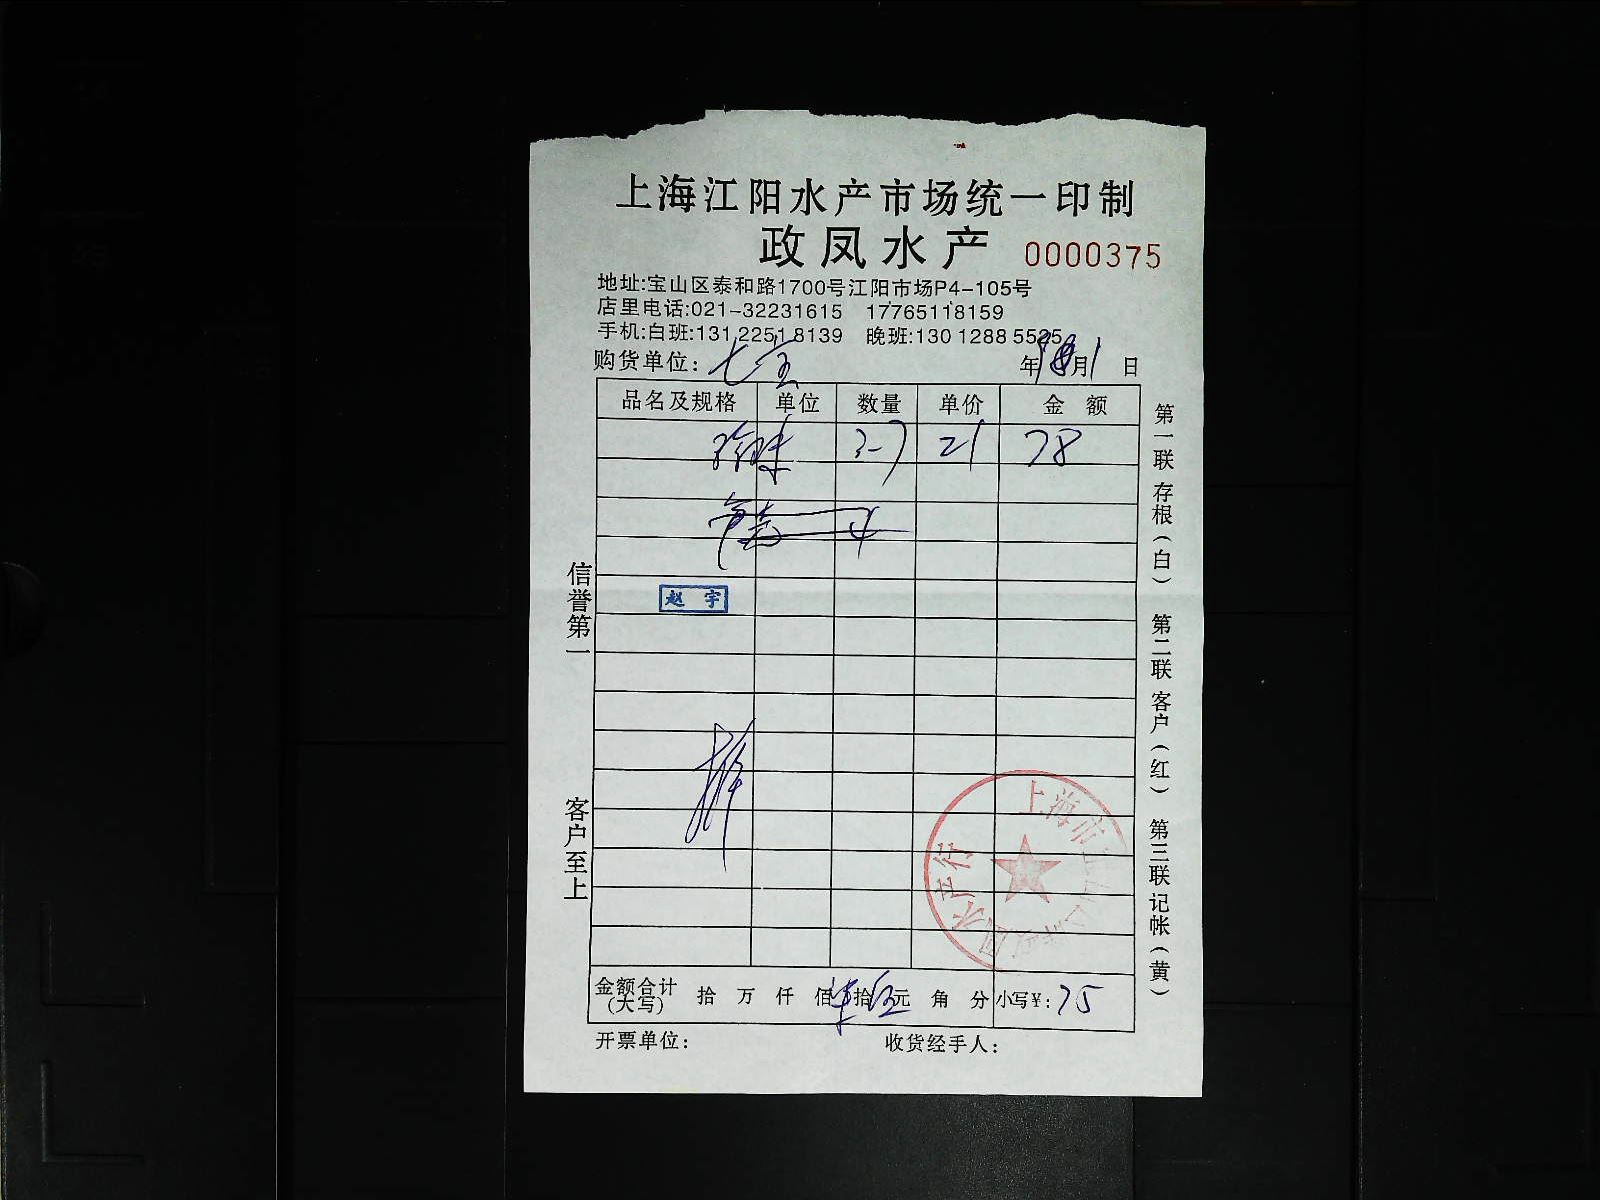 上海江阳水产市场统一印制
政凤水产 0000375
地址:宝山区泰和路1700号江阳市场P4-105号
店里电话:021-32231615 17765118159
手机:白班:131 2251 8139 晚班:130 1288 5525
购货单位: 七宝 年 月1日
品名及规格 单位 数量 单价 金额
3-7 21 78
4
赵宇
信誉第一
客户至上
第一联存根(白) 第二联客户(红) 第三联记帐(黄)
上海市 水产行
金额合计(大写) 拾 万 仟 佰 柒拾伍元 角 分 小写¥:75
开票单位: 收货经手人: